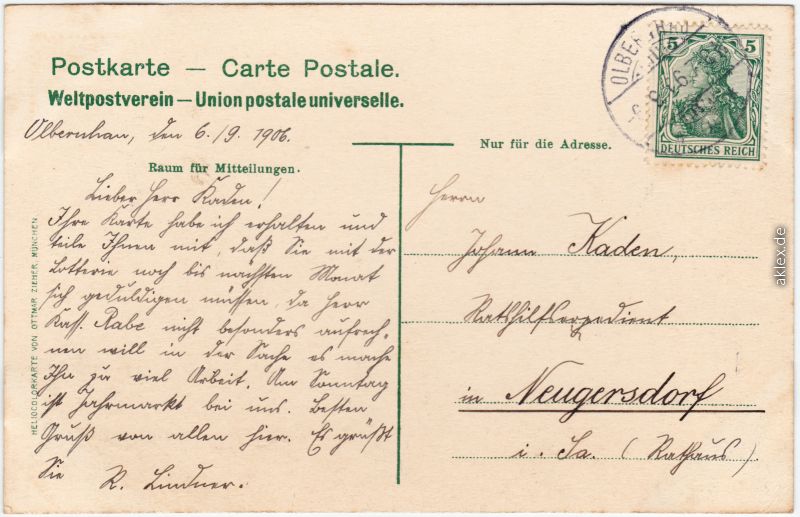 Postkarte — Carte Postale.
Weltpostverein — Union postale universelle.
Olbernhau, den 6./9. 1906.
Raum für Mitteilungen.
Lieber Herr Kaden!
Ihre Karte habe ich erhalten und
teile Ihnen mit, daß Sie mit der
Lotterie noch bis nächsten Monat
sich geduldigen müssen, da Herr
Kass. Rabe nicht besonders aufrech-
nen will in der Sache es mache
Ihn zu viel Arbeit. Am Sonntag
ist Jahrmarkt bei uns. Besten
Gruß von allen hier. Es grüßt
Sie R. Lindner.
HELIOCOLORKARTE VON OTTMAR ZIEHER, MÜNCHEN
Nur für die Adresse.
Herrn
Johann Kaden,
Ratshilfsexpedient
in Neugersdorf
i. Sa. (Rathaus).
OLBERNHAU
5 5
DEUTSCHES REICH
aklex.de